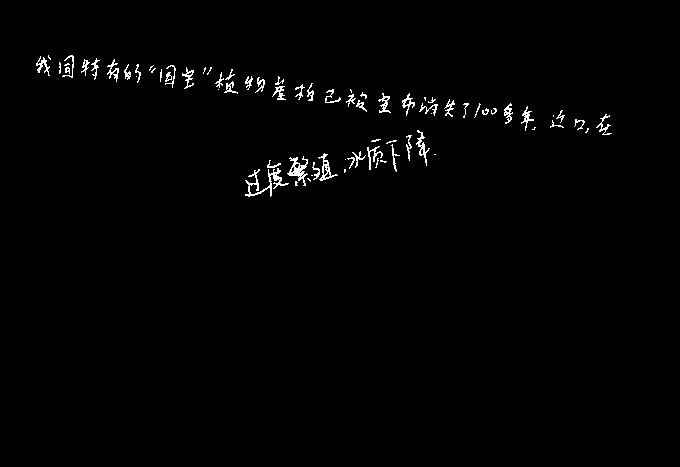 我国特有的“国宝”植物崖柏已被宣布消失了100多年，近日，在
过度繁殖，水质下降.